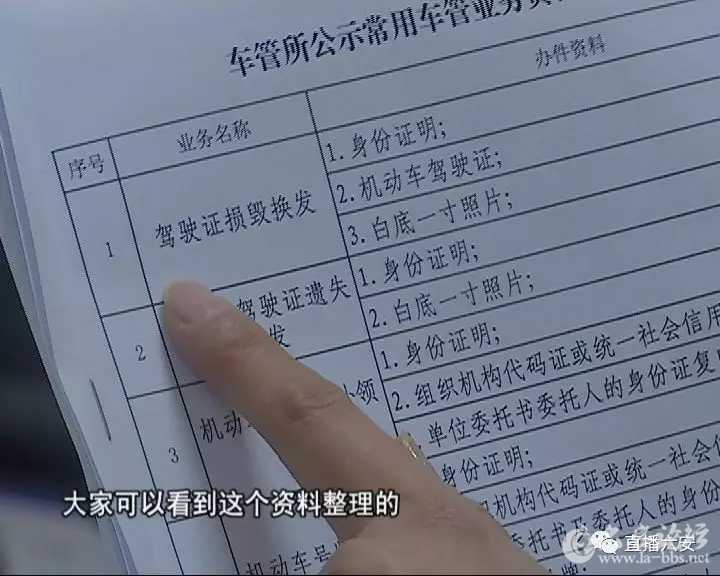 车管所公示常用车管业务
办件资料
序号
业务名称
1
驾驶证损毁换发
1. 身份证明;
2. 机动车驾驶证;
3. 白底一寸照片;
2
驾驶证遗失
发
1. 身份证明;
2. 白底一寸照片;
3
机动
领
1. 身份证明;
2. 组织机构代码证或统一社会信用
单位委托书委托人的身份证复
机动车号
身份证明;
组织机构代码证或统一社会
单位委托书委托人的身份
大家可以看到这个资料整理的
直播六安
www.la-bbs.net